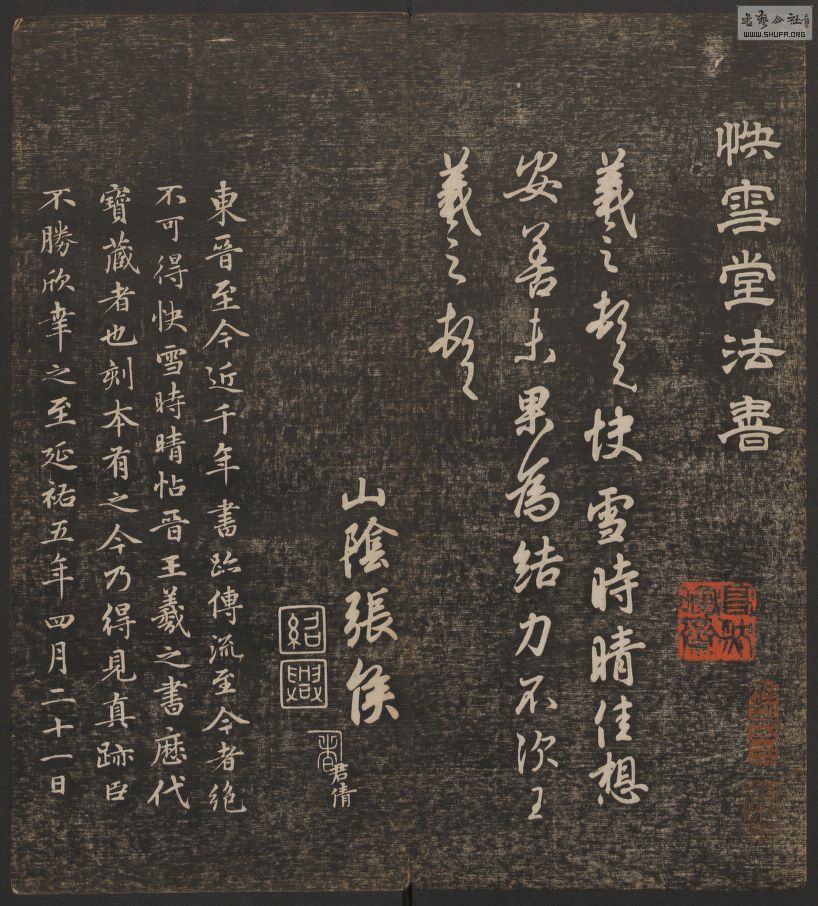 快雪堂法書
羲之頓首快雪時晴佳想
安善未果為結力不次王
羲之頓首
山陰張侯
紹興
君倩
東晉至今近千年書跡傳流至今者絕
不可得快雪時晴帖晉王羲之書歷代
寶藏者也刻本有之今乃得見真跡臣
不勝欣幸之至延祐五年四月二十一日
書藝公社
WWW.SHUFA.ORG